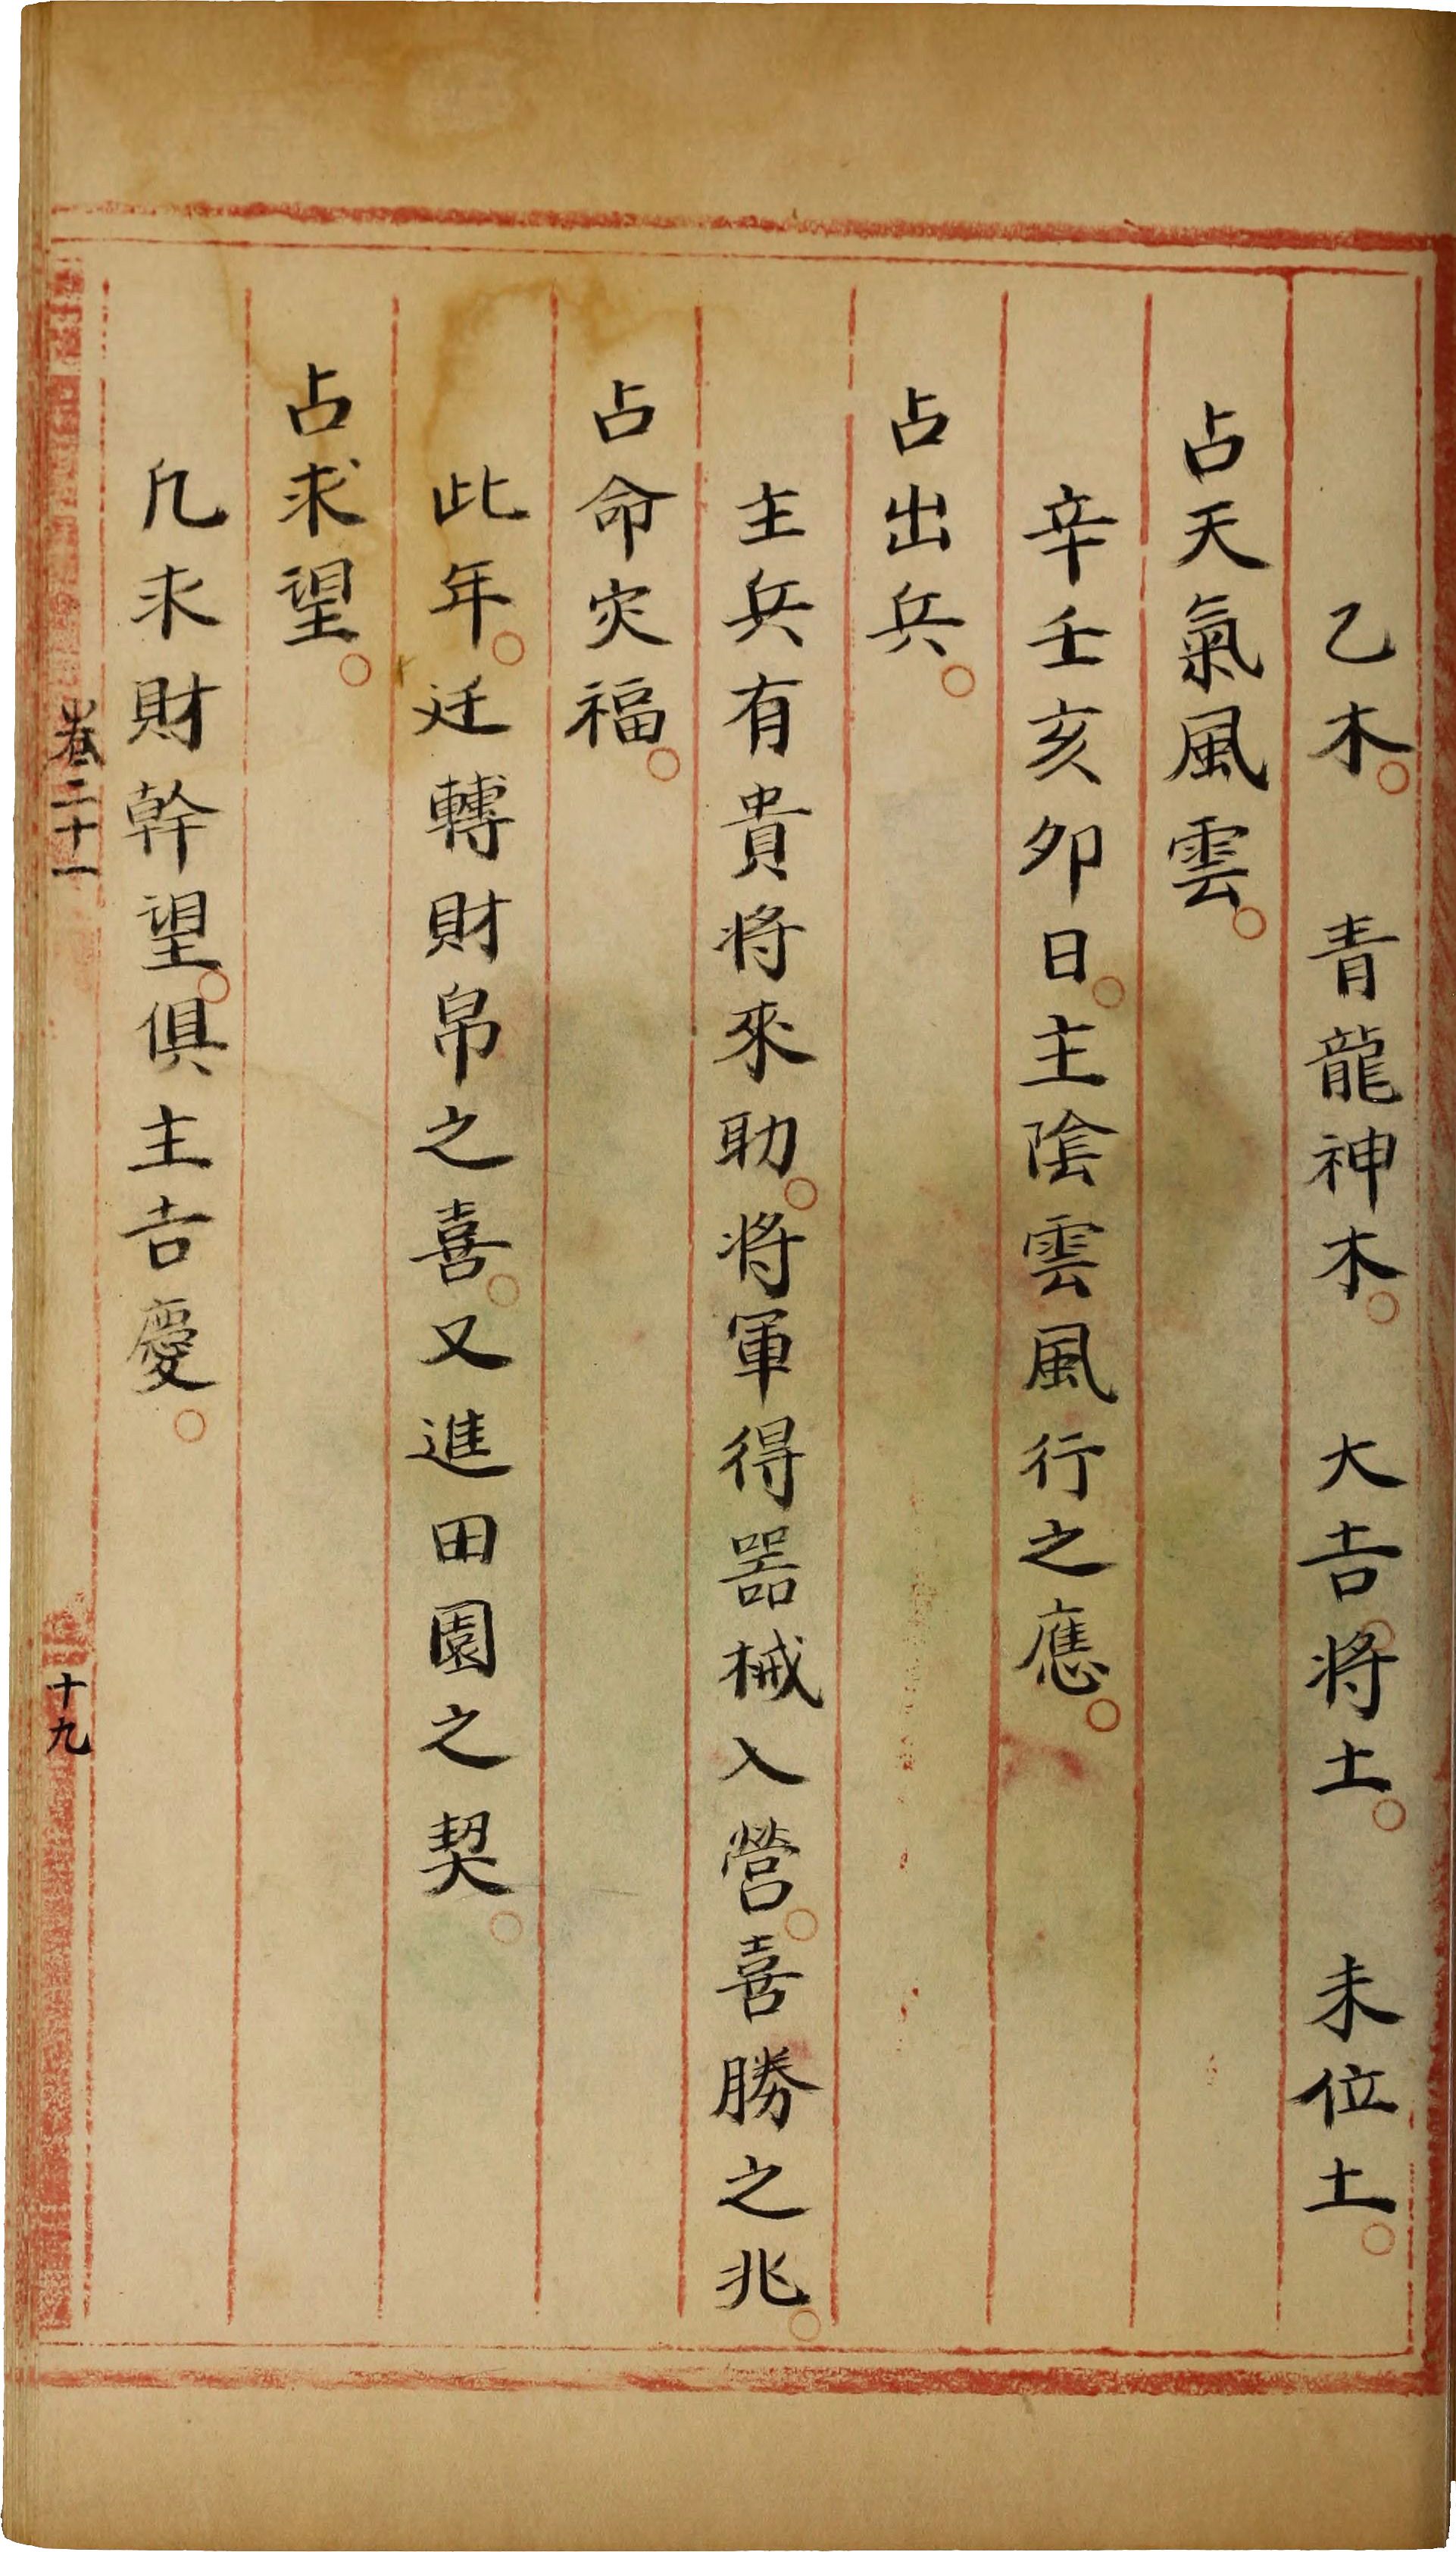 乙木。　青龍神木。　大吉。將土。　未位土。
占天氣風雲。
辛壬亥卯日。主陰雲風行之應。
占出兵。
主兵有貴將來助。將軍得器械入營。喜勝之兆。
占命灾福。
此年。廷轉財帛之喜。又進田園之契。
占求望。
凡求財幹望。俱主吉慶。
卷二十一
十九